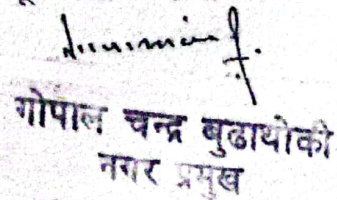 गोपाल चन्द्र बुढाथोकी
नगर प्रमुख